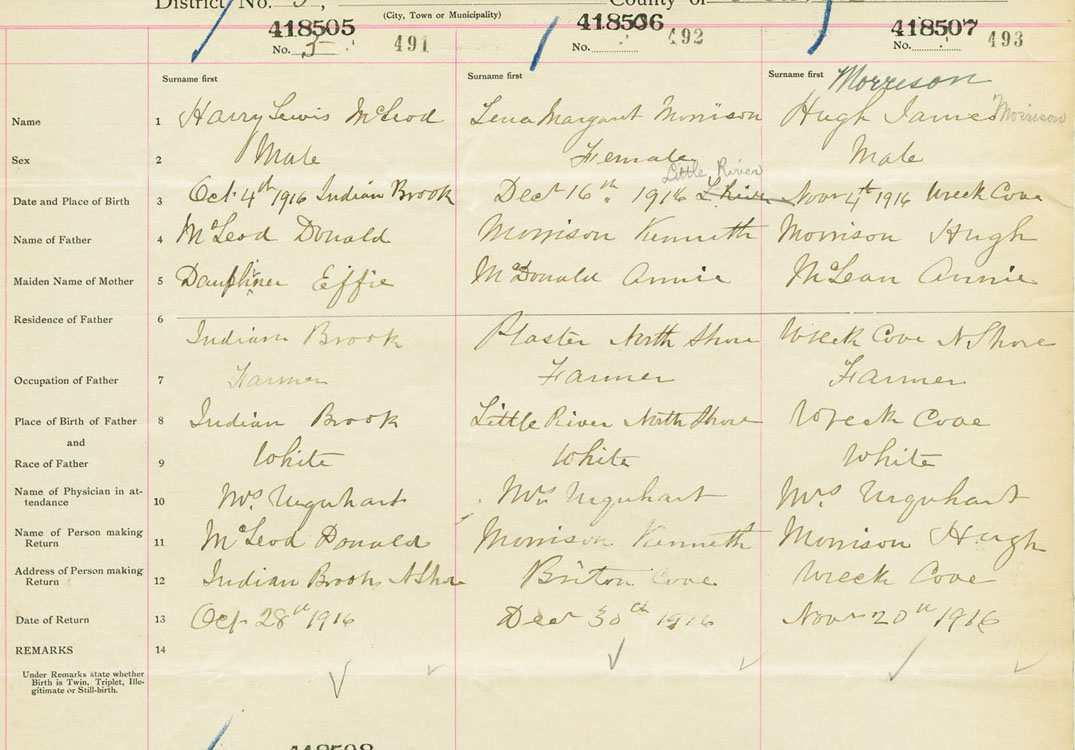 District No. 5, County of
(City, Town or Municipality)
418505 418506 418507
No. 5 491 No. 492 No. 493
Surname first Surname first Surname first Morrison
Name 1 Harry Lewis McLeod Lena Margaret Morrison Hugh James Morrison
Sex 2 Male Female Male
Little River
Date and Place of Birth 3 Oct 4th 1916 Indian Brook Decr 16th 1916 L. River Novr 4th 1916 Wreck Cove
Name of Father 4 McLeod Donald Morrison Kenneth Morrison Hugh
Maiden Name of Mother 5 Dauphinee Effie McDonald Annie McLean Annie
Residence of Father 6
Indian Brook Plaster North Shore Wreck Cove N Shore
Occupation of Father 7 Farmer Farmer Farmer
Place of Birth of Father 8 Indian Brook Little River North Shore Wreck Cove
and
Race of Father 9 White White White
Name of Physician in at-
tendance 10 Mrs. Urquhart Mrs Urquhart Mrs. Urquhart
Name of Person making
Return 11 McLeod Donald Morrison Kenneth Morrison Hugh
Address of Person making
Return 12 Indian Brook N Shore Briton Cove Wreck Cove
Date of Return 13 Oct 28th 1916 Decr 30th 1916 Novr 20th 1916
REMARKS 14
Under Remarks state whether
Birth is Twin, Triplet, Ille-
gitimate or Still-birth.
418508